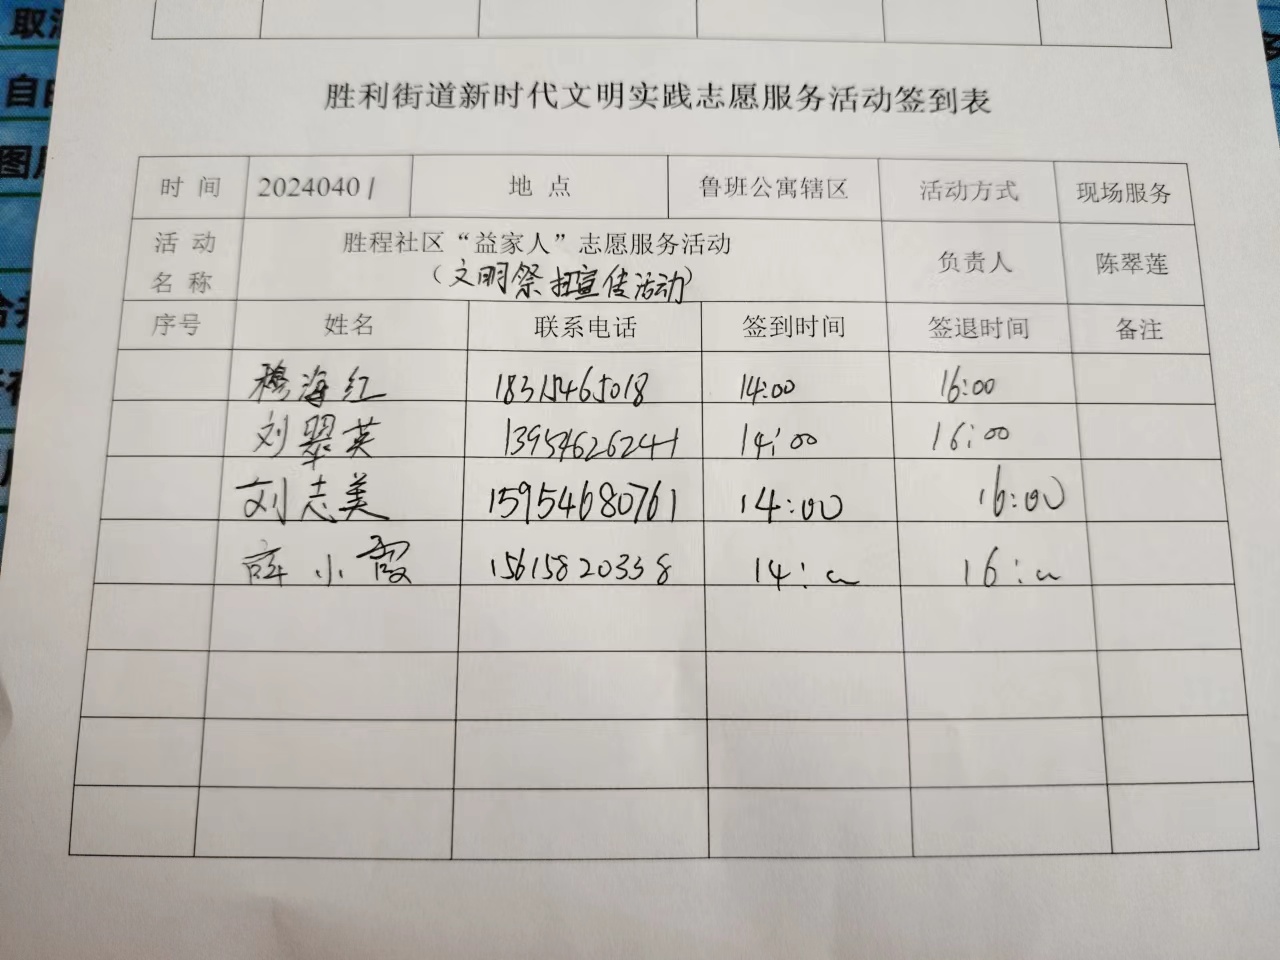 取消
自由
图层
胜利街道新时代文明实践志愿服务活动签到表
时 间 20240401 地 点 鲁班公寓辖区 活动方式 现场服务
活 动 名 称 胜程社区“益家人”志愿服务活动 负责人 陈翠莲
（文明祭扫宣传活动）
序号 姓名 联系电话 签到时间 签退时间 备注
穆海红 18315465018 14:00 16:00
刘翠英 13954626241 14:00 16:00
刘志美 15954680761 14:00 16:00
薛小霞 15615820338 14:00 16:00